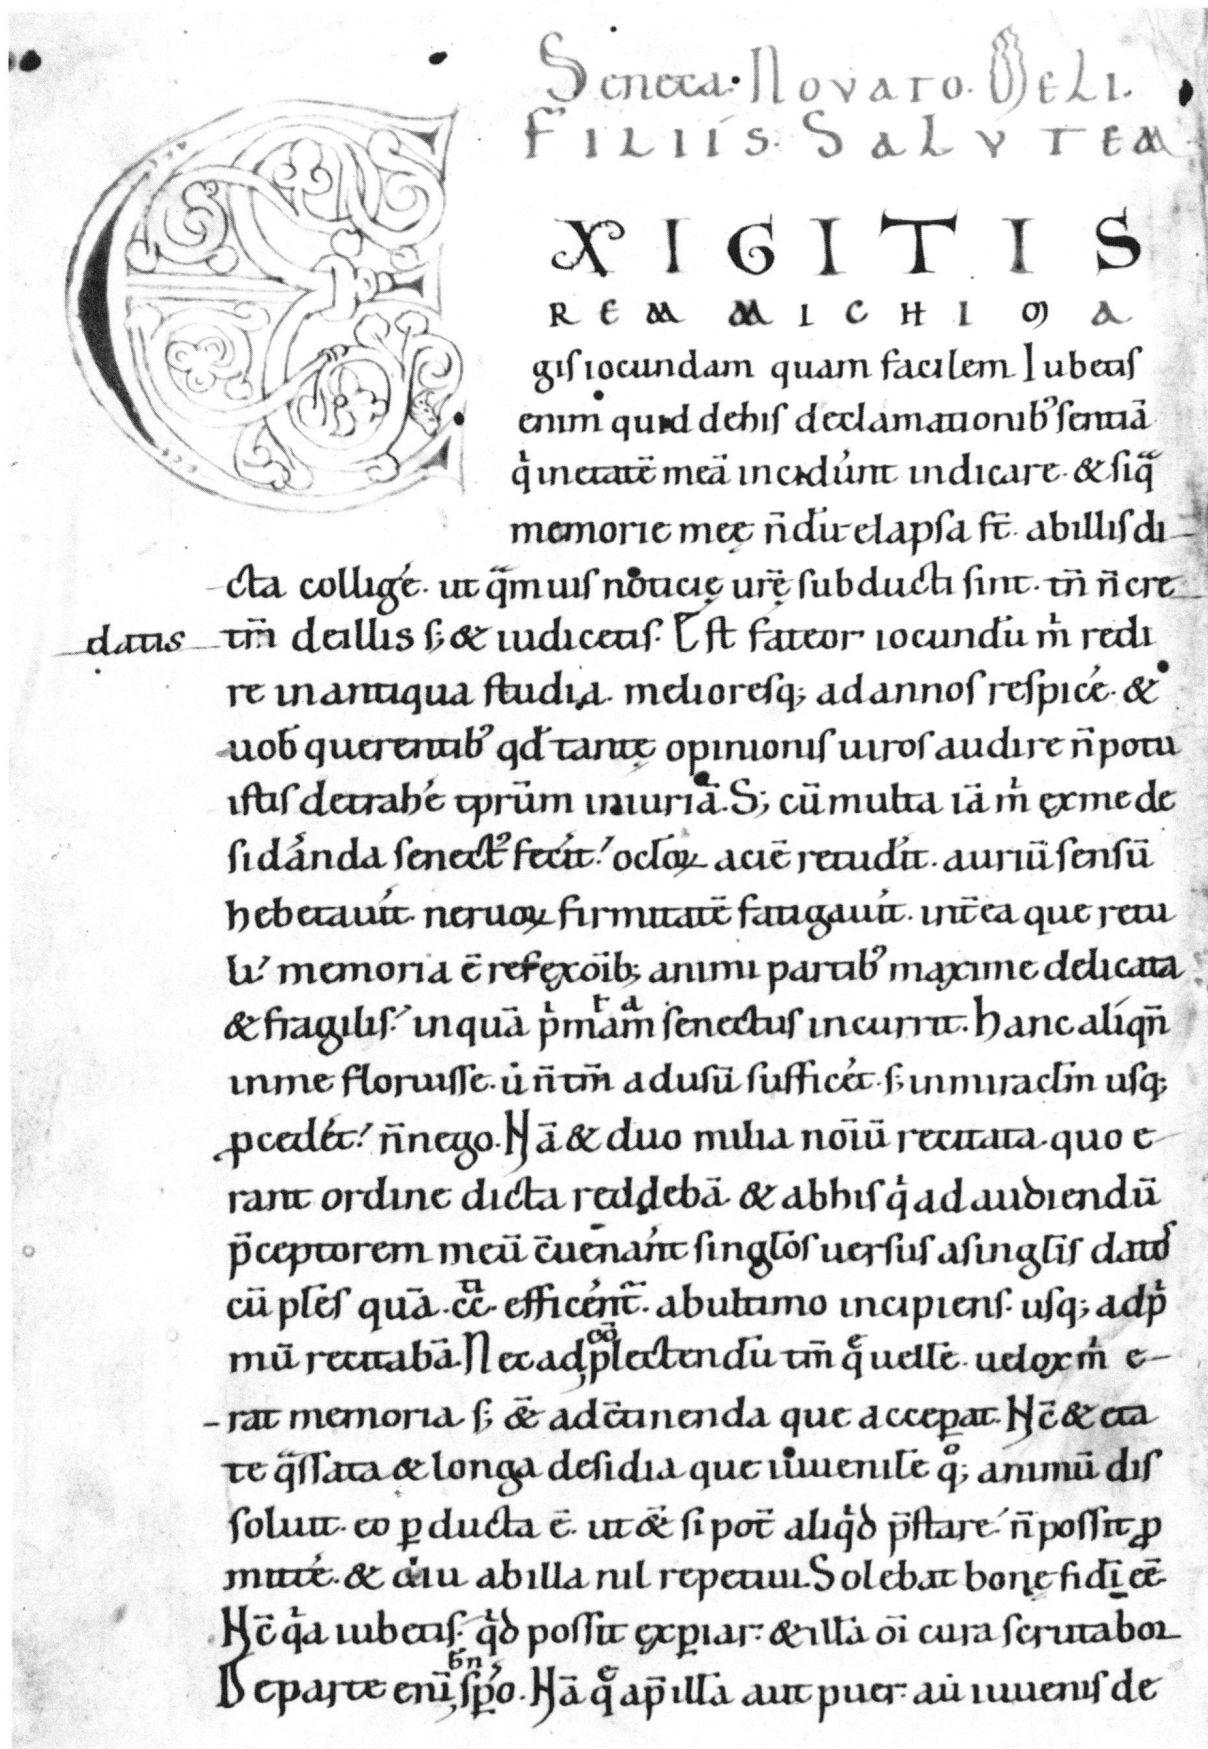 Seneca. Novato. Meli.
Filiis. Salutem
EXIGITIS
REM MICHI MA
gis iocundam quam facilem Iubetis
enim quid dehis declamationib᾽ sentiā
q̍ inetatē meā inciderunt indicare. & siq̄
memorie meę n̄dū elapsa st̄. abillis di
cta colligē. ut q̄muis noticię urę̄ subducti sint. tm̄ n̄ cre
datis tm̄ deillis s; & iudicetis. Est fateor iocundū m̍ redi
re inantiqua studia. melioresq; adannos respicē. &
uob̄ querentib᾽ qd̄ tantę opinionis uiros audire n̄ potu
istis detrahē tp̄rūm iniuriā. S; cū multa iā m̍ ęxme de
sidanda senect᾽ fecit. ocloꝝ aciē retudit. auriū sensū
hebetauit. neruoꝝ firmitatē fatigauit. int̄ ea que retu
li. memoria ē res ęxōib; animi partib᾽ maxime delicata
& fragilis. inquā p̍mam senectus incurrit. Hanc aliqn̄
inme floruisse. ů n̄ tm̄ adusū sufficēt. s; inmiraclm̄ usq;
ꝓcedēt. n̄ nego. Nā & duo milia noīū recitata. quo e
rant ordine dicta reddebā & abhis q̍ adaudiendū
p̄ceptorem meū c̄uenant singlo̅s uersus asingl̄is datos
cū pl̄es quā. cc. efficent̄. abultimo incipiens. usq; adp̍
mū recitabā. Nec adcōplectendū tm̄ q̄ uellē. ueloxm̍ e
rat memoria s; &̄ adc̄tinenda que acceꝑat. Nc̄ & eta
te q̄ssata & longa desidia que iuuenilē qͦ; animū dis
soluit. eo ꝑducta ē. ut &̄ si pot̄ aliq̍d p̄stare. n̄ possit ꝓ
mittē. & diu abilla nil repetiui. Solebat bonę fidī eē
Nc̄ q̍a iubetis. q̍d possit ęxꝑiar. & illā oī cura scrutabor
Departe enī bn̄ spo. Nā q̄ ap̄ illā aut puer. aū iuuenis de